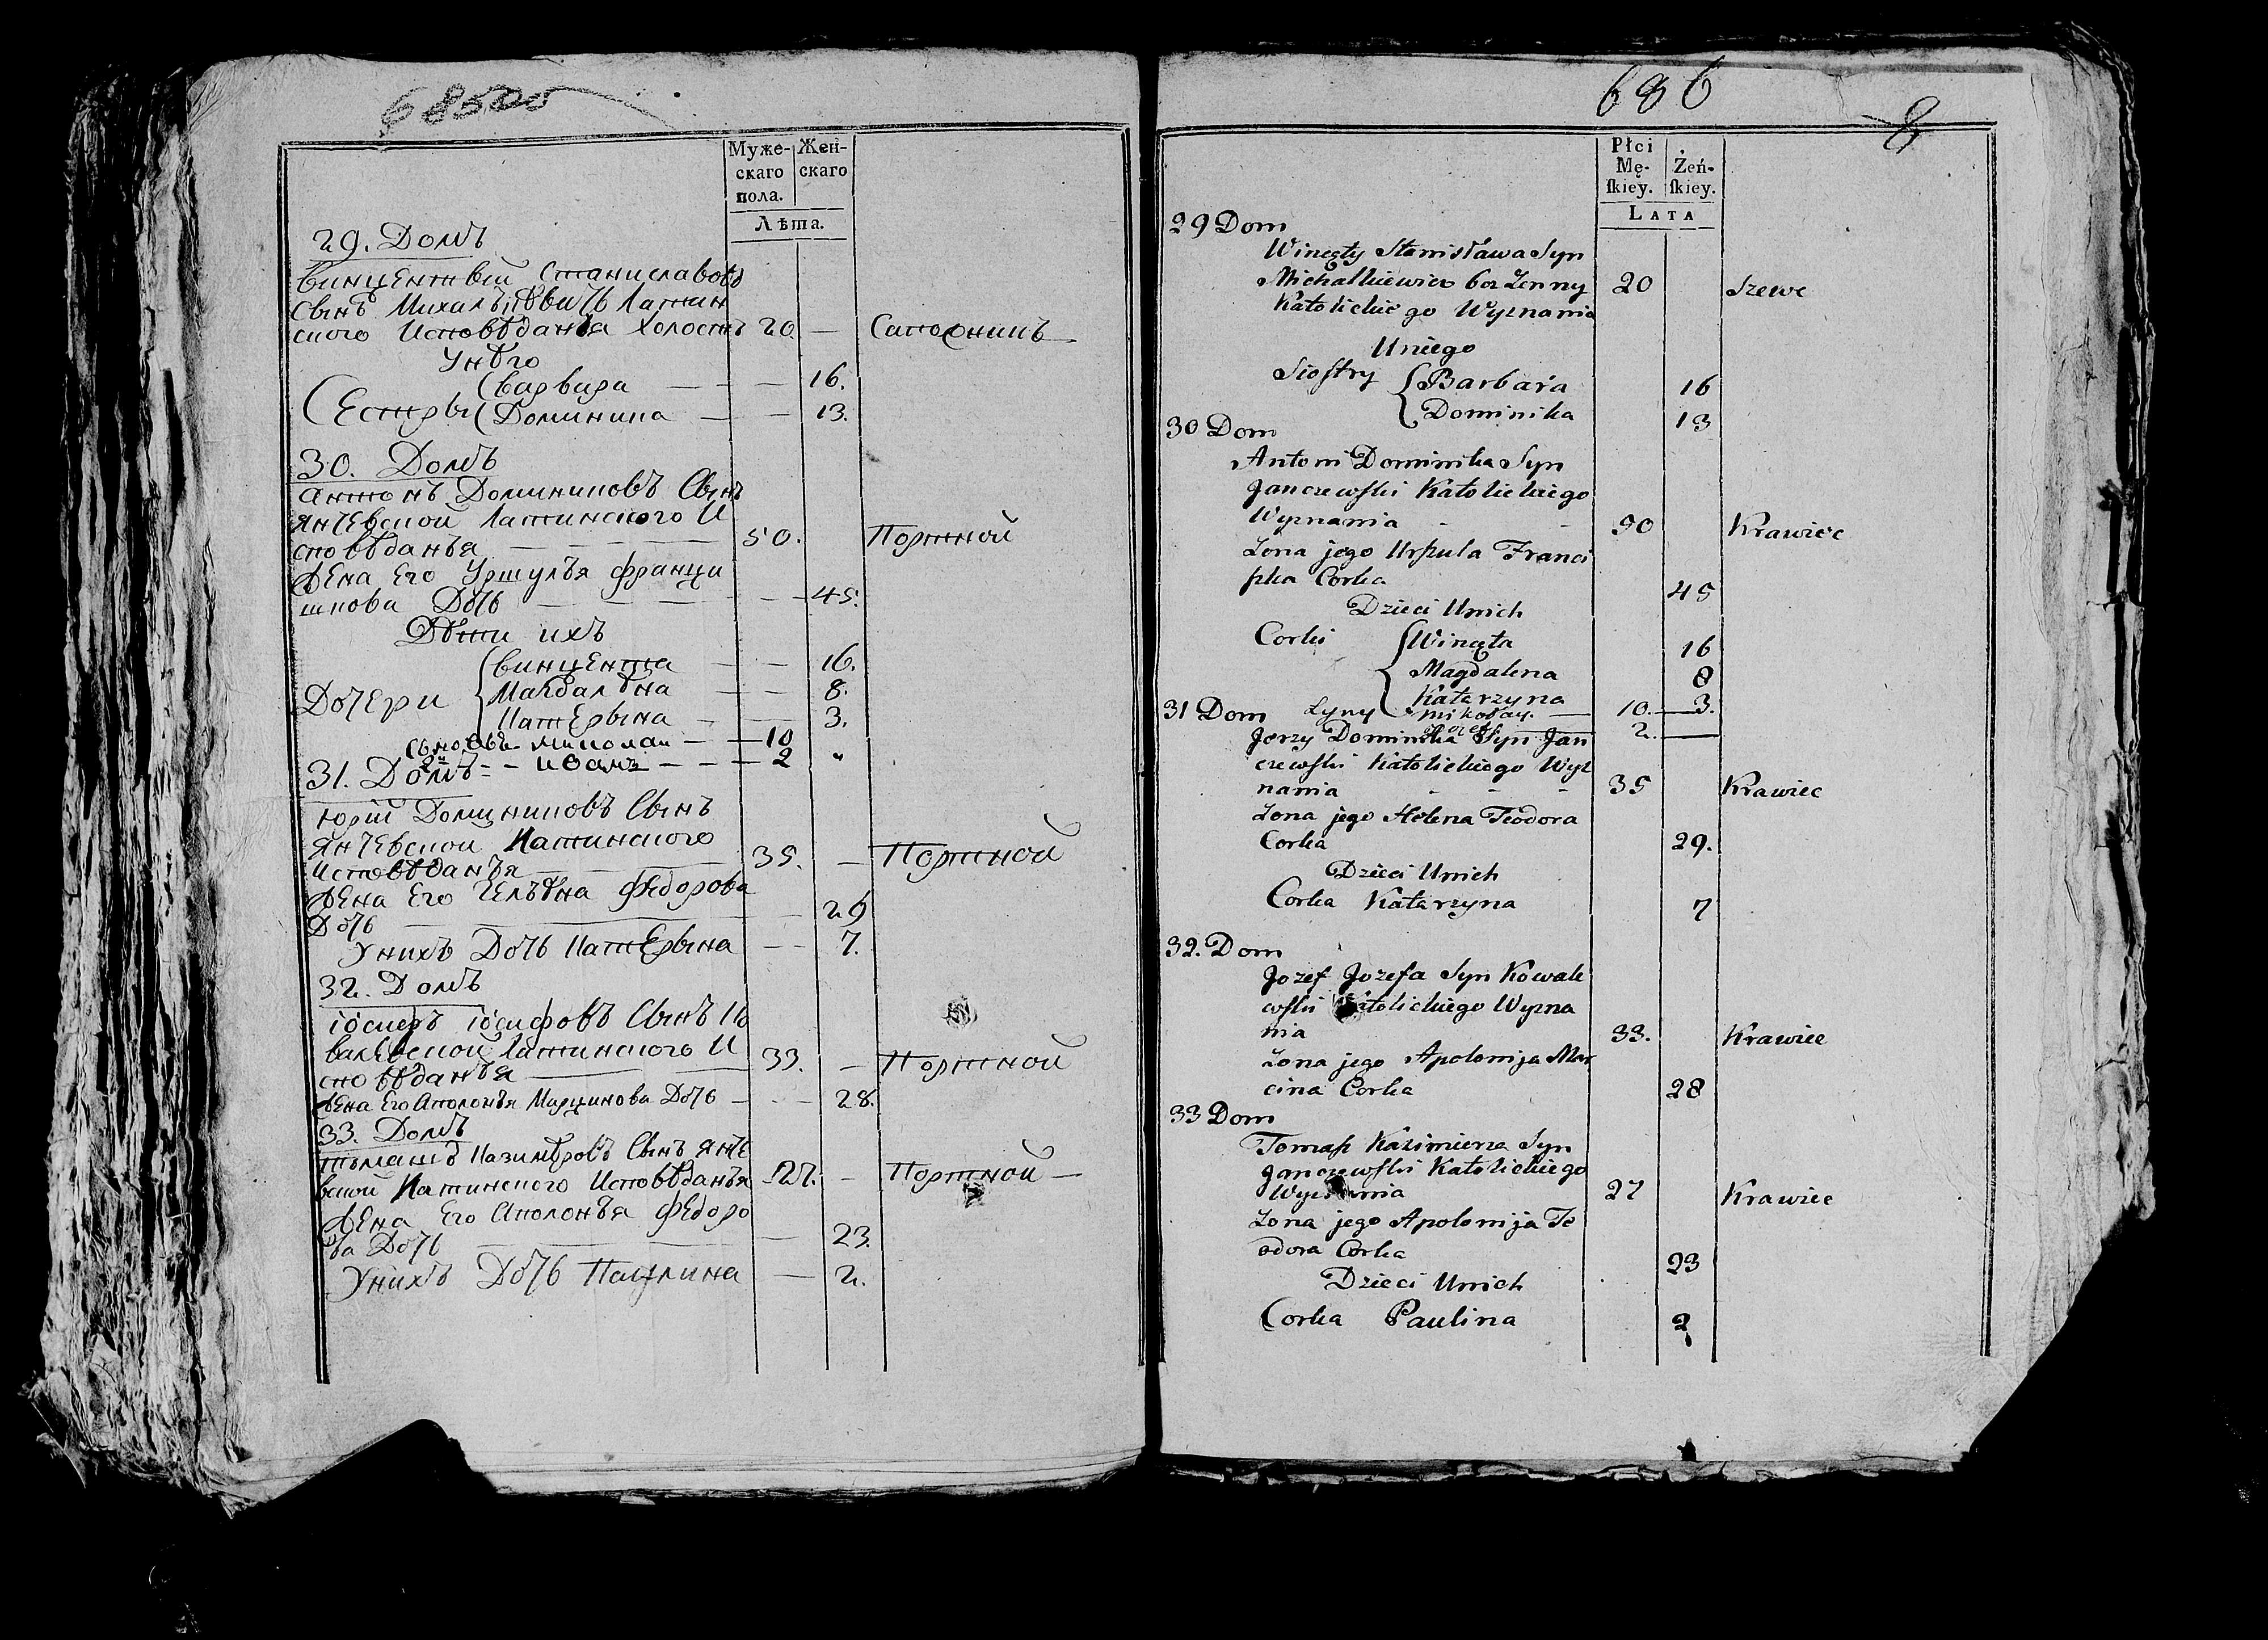 685
Муже-
скаго
пола.
Жен-
скаго
Лѣта.
29. Домъ
Винцентый Станиславовъ
Сынъ Михалькѣвичь Латин
ского Исповѣданья холостъ 20. — Сапожникъ
Унѣго
Сестры Варвара — — 16.
Доминика — — 13.
30. Домъ
Антонъ Доминиковъ Сынъ
Янчевской Латинского И
сповѣданья — 50. Портной
Жена Его Уршулья Франци
шкова Дочь — — 45.
Дѣти ихъ
Дочери Винцента — — 16.
Магдалѣна — — 8.
Катерына — — 3.
Сыновья Миколай — 10
2й — Иванъ — — 2 "
31. Домъ
Юрій Доминиковъ Сынъ
Янчевской Латинского
Исповѣданья — 35. — Портной
Жена Его Гелѣна Федорова
Дочь — 29
Унихъ Дочь Катерына — 7.
32. Домъ
Іосифъ Іосифовъ Сынъ Ко
валевской Латинского И
сповѣданья — 33. — Портной
Жена Его Аполонья Марцинова Дочь — — 28.
33. Домъ
Томашъ Казимѣровъ Сынъ Янче
вской Латинского Исповѣданья 27. — Портной —
Жена Его Аполонья Федоро
ва Дочь — 23.
Унихъ Дочь Паулина — 2.
686
Płci
Mę-
ſkiey.
Żeń-
ſkiey.
LATA
29 Dom
Wincęty Stanisława Syn
Michalkiewicz bez Zenny 20 Szewc
Katolickiego Wyznania
Uniego
Siostry Barbara 16
Dominika 13
30 Dom
Antoni Dominika Syn
Janczewski Katolickiego
Wyznania - - 50 Krawiec
Zona jego Urszula Franci
szka Corka 45
Dzieci Unich
Corki Wincęta 16
Magdalena 8
Katarzyna 3.
31 Dom Syny Mikołay. — 10. —
2. —
Jerzy Dominika Syn Jan
czewski Katolickiego Wyz
nania - - - 35 Krawiec
Zona jego Helena Teodora
Corka 29.
Dzieci Unich
Corka Katarzyna 7
32. Dom
Jozef Jozefa Syn Kowale
wski Katolickiego Wyzna
nia 33. Krawiec
Zona jego Apolonija Mar
cina Corka 28
33 Dom
Tomasz Kazimierza Syn
Janczewski Katolickiego
Wyznania 27 Krawiec
Zona jego Apolonija Te
odora Corka 23
Dzieci Unich
Corka Paulina 2